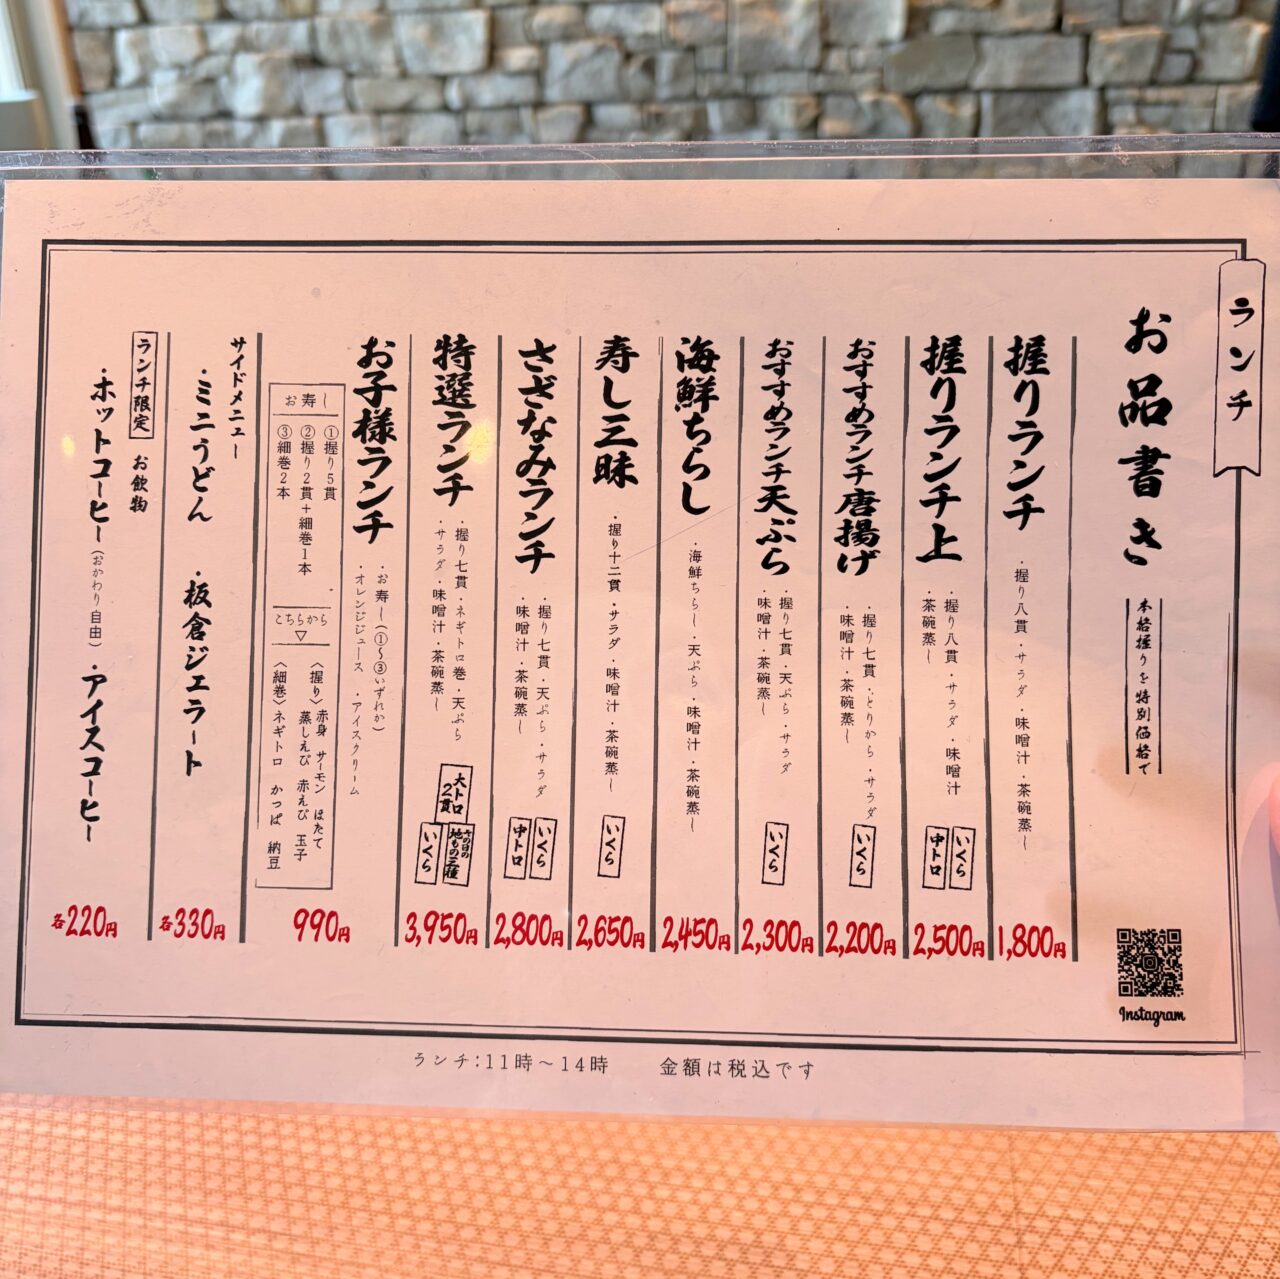 ランチ
お品書き
本格握りを特別価格で
握りランチ
・握り八貫・サラダ・味噌汁・茶碗蒸し
1,800円
握りランチ上
・握り八貫・サラダ・味噌汁
・茶碗蒸し
いくら
中トロ
2,500円
おすすめランチ唐揚げ
・握り七貫・とりから・サラダ
・味噌汁・茶碗蒸し
いくら
2,200円
おすすめランチ天ぷら
・握り七貫・天ぷら・サラダ
・味噌汁・茶碗蒸し
いくら
2,300円
海鮮ちらし
・海鮮ちらし・天ぷら・味噌汁・茶碗蒸し
2,450円
寿し三昧
・握り十二貫・サラダ・味噌汁・茶碗蒸し
いくら
2,650円
さざなみランチ
・握り七貫・天ぷら・サラダ
・味噌汁・茶碗蒸し
いくら
中トロ
2,800円
特選ランチ
・握り七貫・ネギトロ巻・天ぷら
・サラダ・味噌汁・茶碗蒸し
大トロ
2貫
その日の
地もの三種
いくら
3,950円
お子様ランチ
・お寿し(①〜③いずれか)
・オレンジジュース ・アイスクリーム
お寿し
①握り5貫
②握り2貫+細巻1本
③細巻2本
こちらから
▽
〈握り〉赤身 サーモン ほたて
蒸しえび 赤えび 玉子
〈細巻〉ネギトロ かっぱ 納豆
990円
サイドメニュー
・ミニうどん ・板倉ジェラート
各330円
ランチ限定 お飲物
・ホットコーヒー(おかわり自由) ・アイスコーヒー
各220円
Instagram
ランチ:11時〜14時 金額は税込です